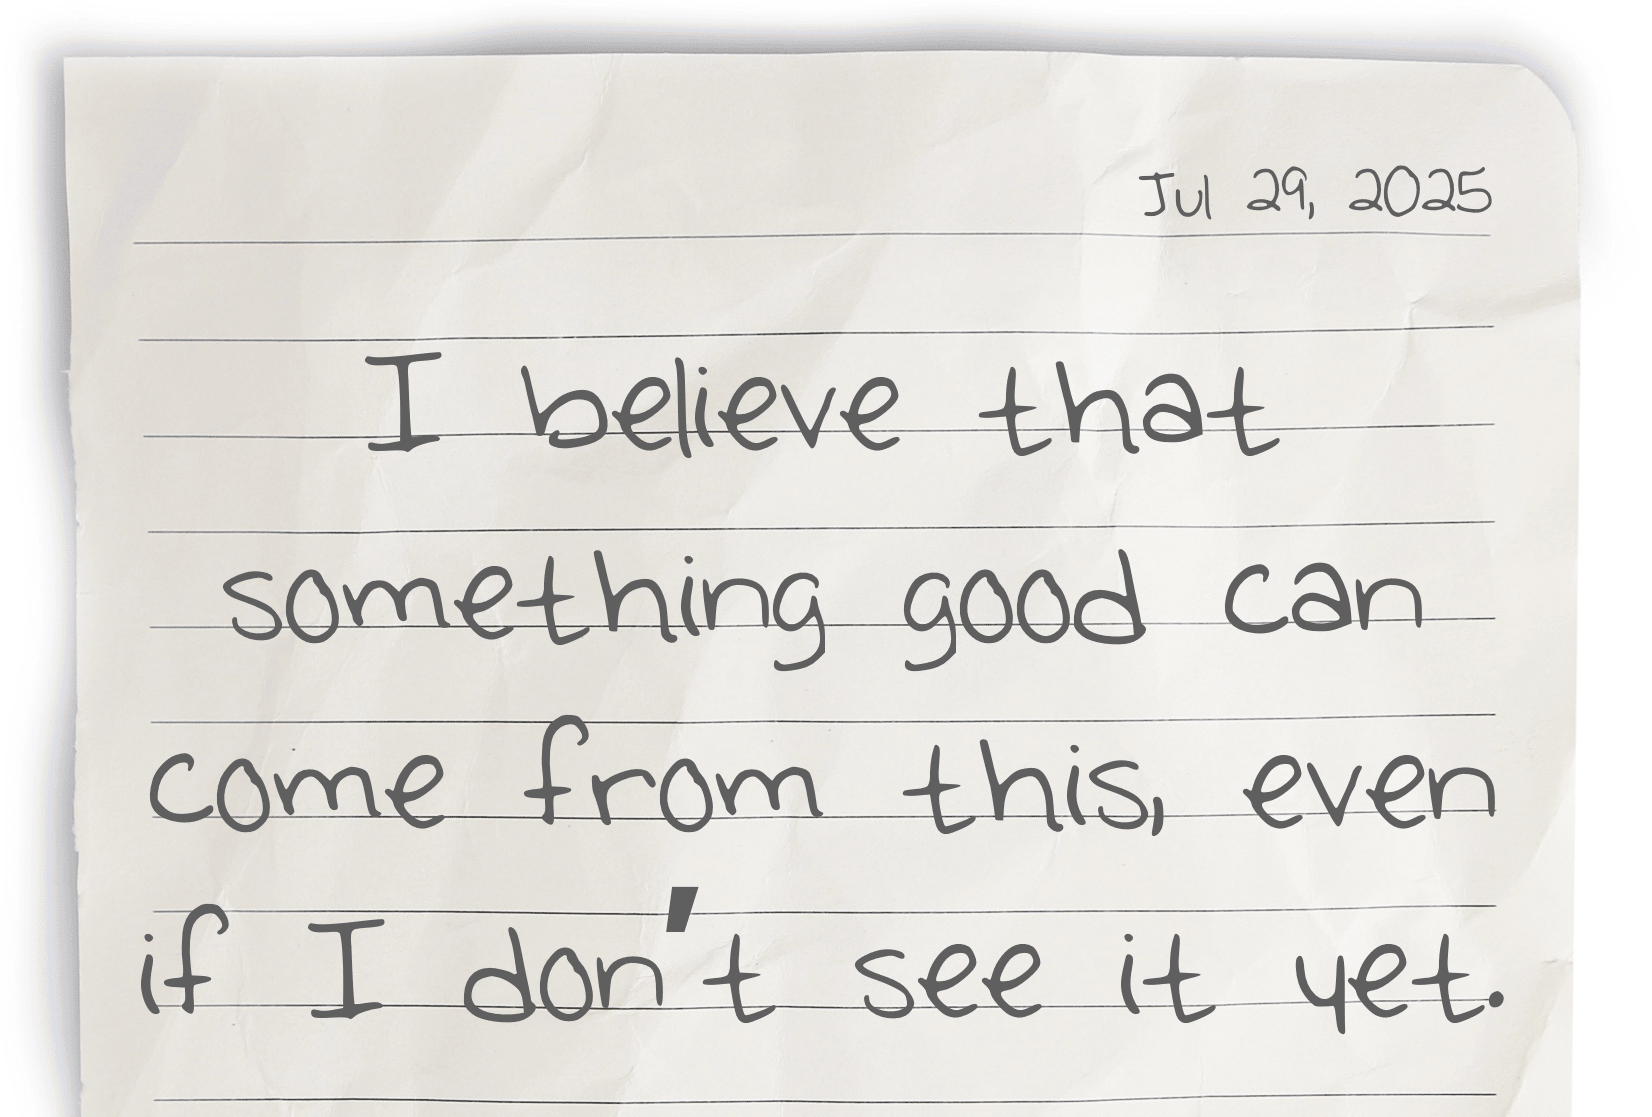 Jul 29, 2025
I believe that
something good can
come from this, even
if I don't see it yet.